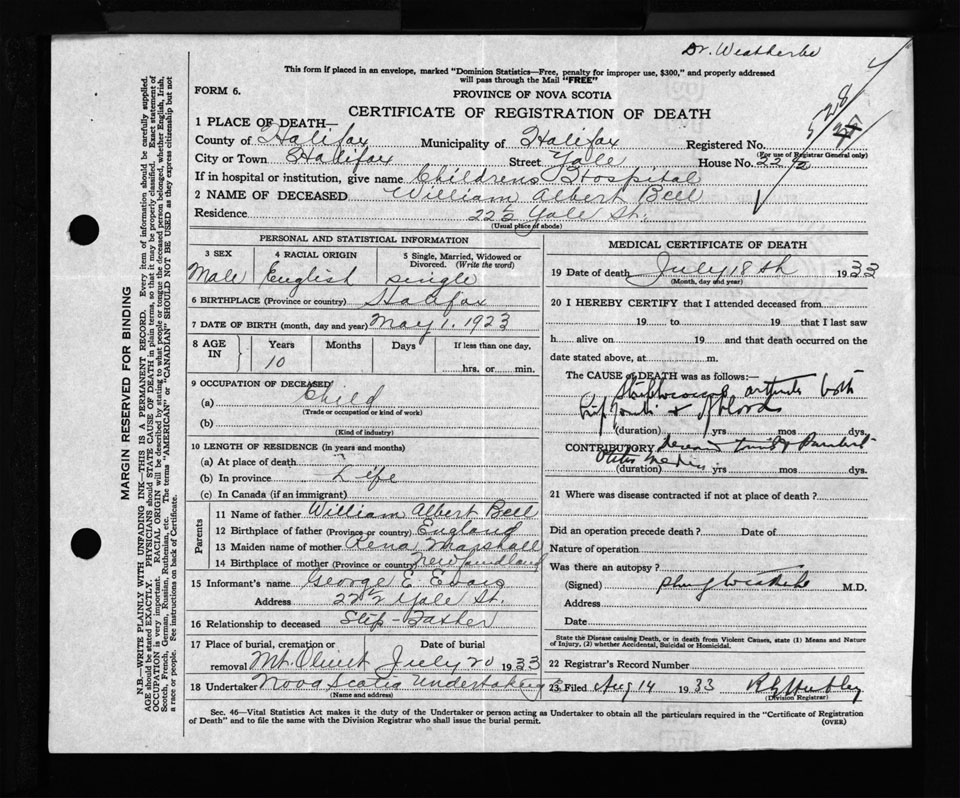 Dr. Weatherbe
This form if placed in an envelope, marked "Dominion Statistics—Free, penalty for improper use, $300," and properly addressed
will pass through the Mail "FREE"
FORM 6.
PROVINCE OF NOVA SCOTIA
CERTIFICATE OF REGISTRATION OF DEATH
528
1 PLACE OF DEATH—
County of Halifax Municipality of Halifax Registered No.
(For use of Registrar General only)
City or Town Halifax Street Yale House No. 22 1/2
If in hospital or institution, give name Childrens Hospital
2 NAME OF DECEASED William Albert Bell
Residence 222 Yale St.
(Usual place of abode)
PERSONAL AND STATISTICAL INFORMATION
3 SEX 4 RACIAL ORIGIN 5 Single, Married, Widowed or Divorced. (Write the word)
Male English single
6 BIRTHPLACE (Province or country) Halifax
7 DATE OF BIRTH (month, day and year) May 1. 1923
8 AGE IN Years Months Days If less than one day.
10 hrs. or min.
9 OCCUPATION OF DECEASED
(a) Child
(Trade or occupation or kind of work)
(b)
(Kind of industry)
10 LENGTH OF RESIDENCE (in years and months)
(a) At place of death
(b) In province Life
(c) In Canada (if an immigrant)
Parents
11 Name of father William Albert Bell
12 Birthplace of father (Province or country) England
13 Maiden name of mother Rena Marshall
14 Birthplace of mother (Province or country) Newfoundland
15 Informant's name George E. Evans
Address 22 1/2 Yale St.
16 Relationship to deceased Step-Father
17 Place of burial, cremation or removal Date of burial
Mt. Olivet July 20 1933
18 Undertaker Nova Scotia Undertaking
(Name and address)
MEDICAL CERTIFICATE OF DEATH
19 Date of death July 18th 1933
(Month, day and year)
20 I HEREBY CERTIFY that I attended deceased from
19 to 19 that I last saw
h alive on 19 and that death occurred on the
date stated above, at m.
The CAUSE of DEATH was as follows:—
both
(duration) yrs mos dys.
CONTRIBUTORY
Otitis Media
(duration) yrs mos dys.
21 Where was disease contracted if not at place of death?
Did an operation precede death? Date of
Nature of operation
Was there an autopsy?
(Signed) M.D.
Address
Date
State the Disease causing Death, or in death from Violent Causes, state (1) Means and Nature
of Injury, (2) whether Accidental, Suicidal or Homicidal.
22 Registrar's Record Number
23 Filed Aug 14 1933
(Division Registrar)
Sec. 46—Vital Statistics Act makes it the duty of the Undertaker or person acting as Undertaker to obtain all the particulars required in the "Certificate of Registration
of Death" and to file the same with the Division Registrar who shall issue the burial permit.
(OVER)
MARGIN RESERVED FOR BINDING
N.B.—WRITE PLAINLY WITH UNFADING INK—THIS IS A PERMANENT RECORD. Every item of information should be carefully supplied.
AGE should be stated EXACTLY. PHYSICIANS should STATE CAUSE OF DEATH in plain terms, so that it may be properly classified. Exact statement of
OCCUPATION is very important. RACIAL ORIGIN will be described by stating to what people or tongue the deceased person belonged, whether English, Irish,
Scotch, French, German, Russian, Ruthenian, etc. The terms "AMERICAN" or "CANADIAN" SHOULD NOT BE USED as they express citizenship but not
a race or people. See instructions on back of Certificate.